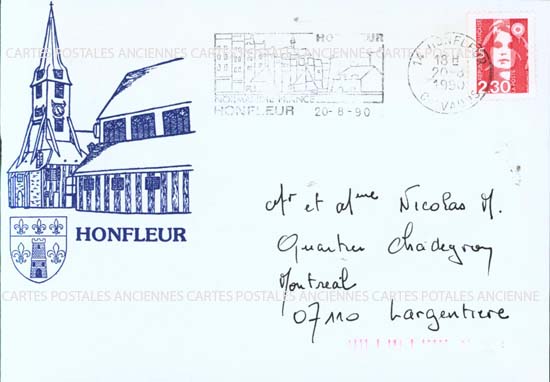 HONFLEUR
NORMANDIE-FRANCE
HONFLEUR 20-8-90
14 HONFLEUR
18 H
20-8
1990
CALVADOS
2,30
CARTES POSTALES ANCIENNES CARTES POSTALES ANCIENNES CARTES POSTALES ANCIENNES
Mr et Mme Nicolas M.
Quartier
HONFLEUR
Montreal
CARTES POSTALES ANCIENNES CARTES POSTALES ANCIENNES CARTES POTALES ANCIENNE
07110 Largentiere